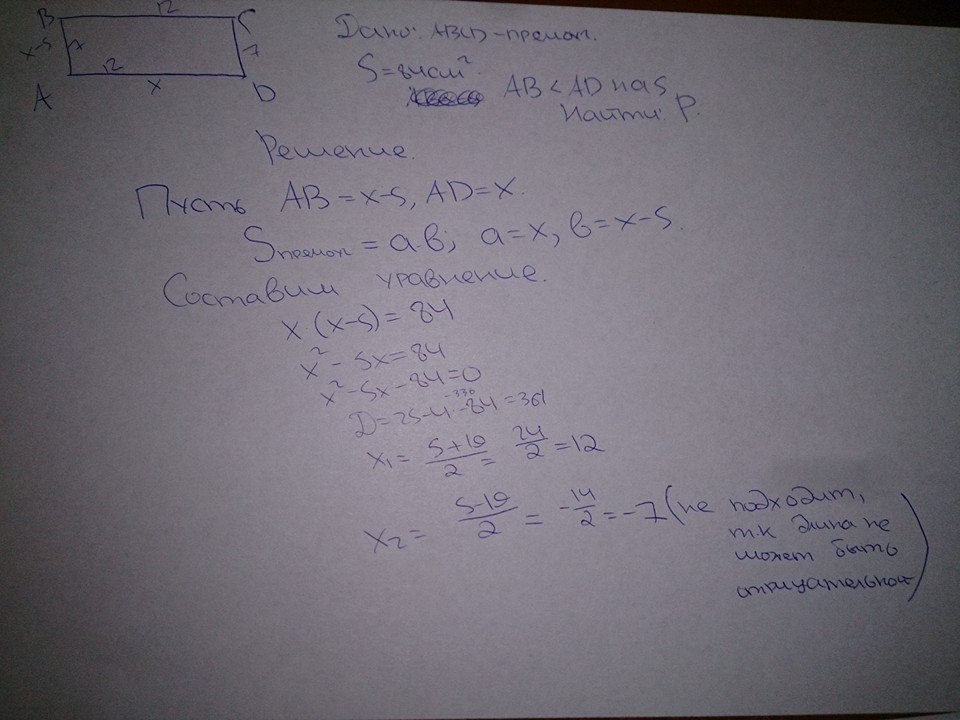 B 12 C
x-5 7 7
12
A x D
Дано: ABCD-прямоуг.
S=84см²
AB < AD на 5
Найти: P.
Решение.
Пусть AB = x-5, AD = x.
Sпрямоуг = a·в; a=x, в=x-5.
Составим уравнение.
x·(x-5)=84
x²-5x=84
x²-5x-84=0
-336
D=25-4·-84=361
x₁= (5+19)/2 = 24/2 = 12
x₂= (5-19)/2 = -14/2 = -7 (не подходит,
т.к длина не
может быть
отрицательной)